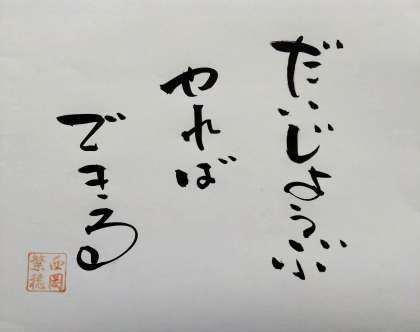 だいじょうぶ
やれば
できる
西岡
繁穂